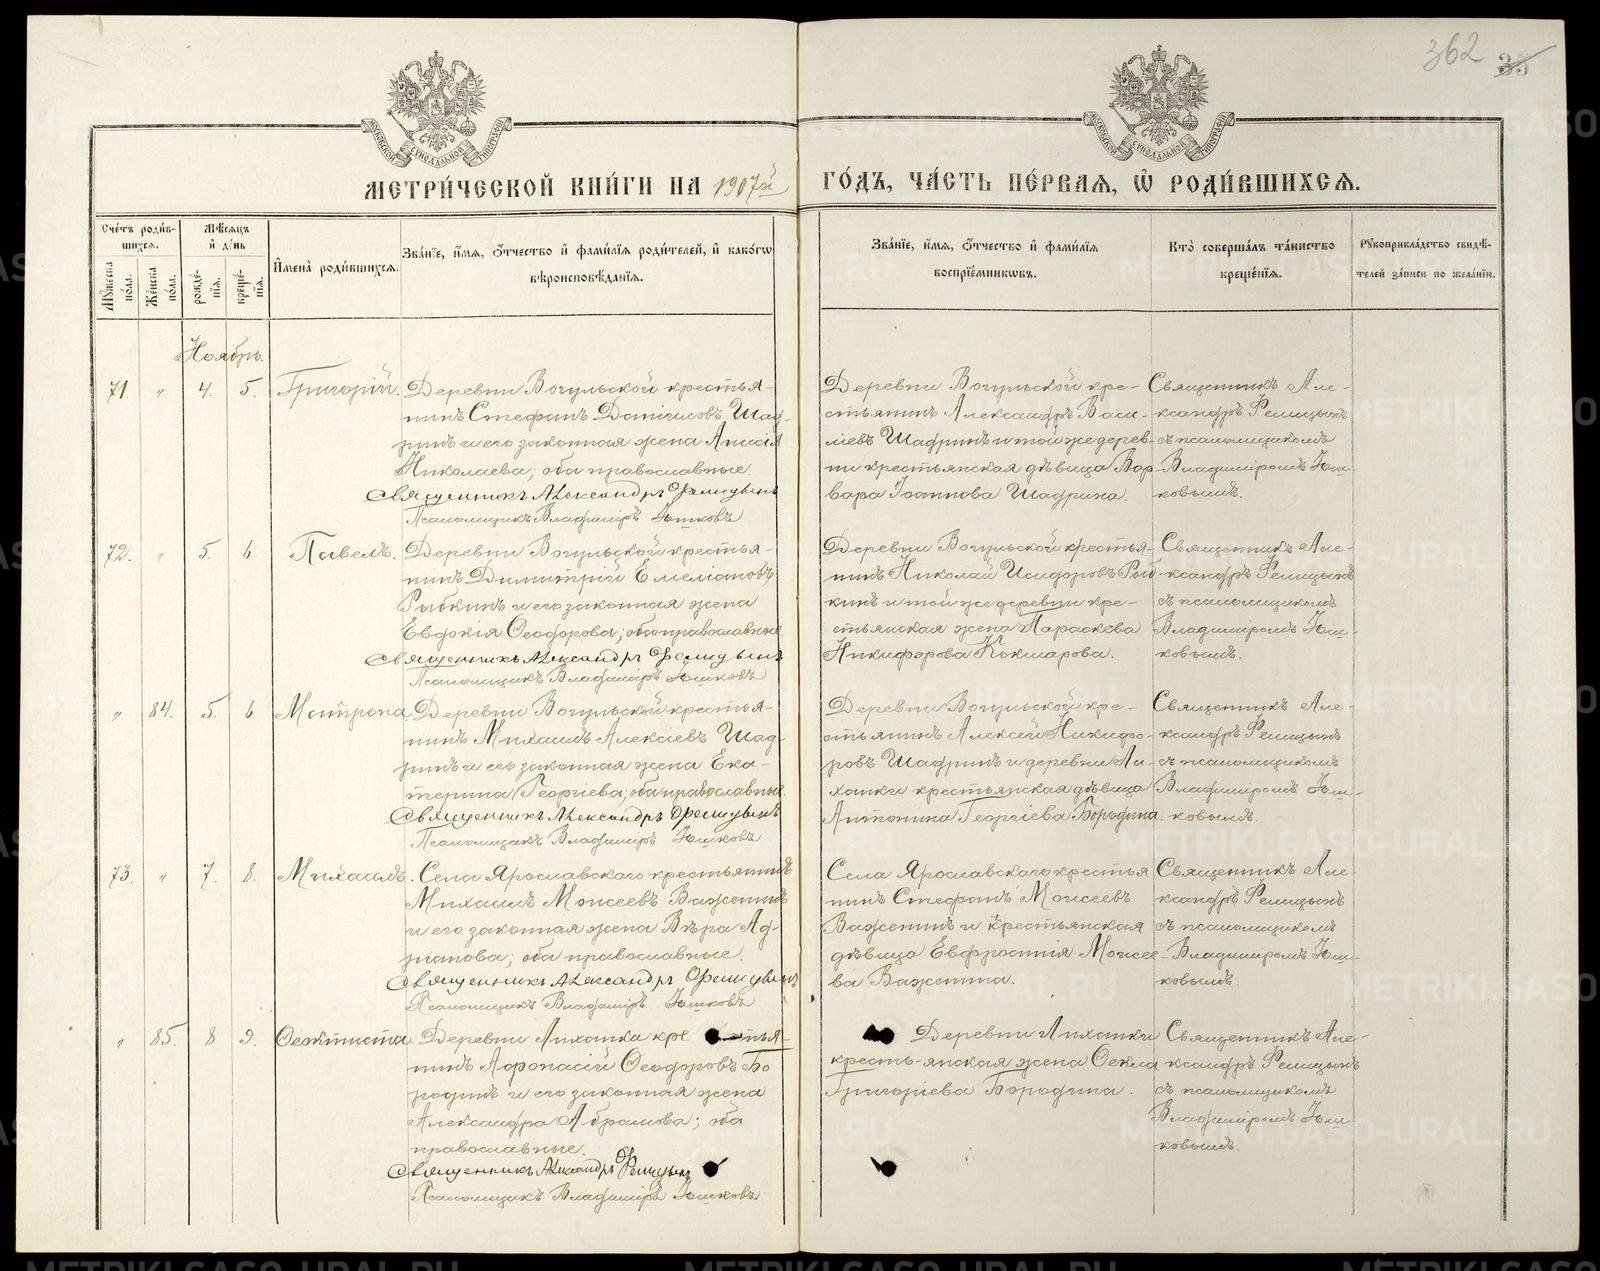 362 35
МОСКОВСКОЙ СѴНОДАЛЬНОЙ ТИПОГРАФІИ
МОСКОВСКОЙ СѴНОДАЛЬНОЙ ТИПОГРАФІИ
МЕТРИ́ЧЕСКОЙ КНИ́ГИ НА 1907й
ГО́ДЪ, ЧА́СТЬ ПЕ́РВАѦ, Ѡ҆ РОДИ́ВШИХСѦ.
Сче́тъ роди́в-
шихся.
Мꙋ́жеска по́ла.
Же́нска по́ла.
Мѣ́сяцъ
и҆ де́нь
рожде́-
нїя.
креще́-
нїя.
И҆мена̀ роди́вшихся.
Зва́нїе, и҆́мя, ѻ҆́тчество и҆ фами́лїя роди́телей, и҆ како́гѡ
вѣроисповѣ́данїя.
Зва́нїе, и҆́мя, ѻ҆́тчество и҆ фами́лїя
воспрїе́мникѡвъ.
Кто̀ соверша́лъ та́инство
креще́нїя.
Рꙋкоприкла́дство свидѣ́-
телей за́писи по жела́нїю.
Ноябрь.
71. " 4. 5. Григорій. Деревни Вогульской крестья-
нинъ Стефанъ Даніиловъ Шад-
ринъ и его законная жена Анисія
Николаева; оба православные.
Священникъ Александръ Фелицынъ
Псаломщикъ Владиміръ Юшковъ
Деревни Вогульской кре-
стьянинъ Александръ Васи-
лiевъ Шадринъ и той же дерев-
ни крестьянская дѣвица Вар-
вара Іоаннова Шадрина.
Священникъ Але-
ксандръ Фелицынъ
съ псаломщикомъ
Владиміромъ Юш-
ковымъ.
72. " 5. 6 Павелъ. Деревни Вогульской крестья-
нинъ Димитрій Емеліановъ
Рыбкинъ и его законная жена
Евдокія Ѳеодорова; оба православные
Священникъ Александръ Фелицынъ
Псаломщикъ Владиміръ Юшковъ
Деревни Вогульской крестья-
нинъ Николай Исидоровъ Рыб-
кинъ и той же деревни кре-
стьянская жена Параскева
Никифорова Кокшарова.
Священникъ Але-
ксандръ Фелицынъ
съ псаломщикомъ
Владиміромъ Юш-
ковымъ.
" 84. 5. 6 Матрона Деревни Вогульской крестья-
нинъ Михаилъ Алексіевъ Шад-
ринъ и его законная жена Ека-
терина Георгіева; оба православные.
Священникъ Александръ Фелицынъ
Псаломщикъ Владиміръ Юшковъ
Деревни Вогульской кре-
стьянинъ Алексей Никифо-
ровъ Шадринъ и деревни Ли-
ханки крестьянская дѣвица
Антонина Георгіева Бородина.
Священникъ Але-
ксандръ Фелицынъ
съ псаломщикомъ
Владиміромъ Юш-
ковымъ.
73. " 7. 8. Михаилъ. Села Ярославскаго крестьянинъ
Михаилъ Моисеевъ Важенинъ
и его законная жена Вѣра Ад-
ріанова; оба православные.
Священникъ Александръ Фелицынъ
Псаломщикъ Владиміръ Юшковъ
Села Ярославскаго крестья
нинъ Стефанъ Моисеевъ
Важенинъ и крестьянская
дѣвица Евфросинія Моисее-
ва Важенина.
Священникъ Але-
ксандръ Фелицынъ
съ псаломщикомъ
Владиміромъ Юш-
ковымъ.
" 85. 8 9. Ѳеоктиста. Деревни Лиханка кре стья-
нинъ Аѳонасій Ѳеодоровъ Бо
родинъ и его законная жена
Александра Абрамова; оба
православные.
Священникъ Александръ Фелицынъ
Псаломщикъ Владиміръ Юшковъ
Деревни Лиханки
кресть-янская жена Ѳекла
Григоріева Бородина.
Священникъ Але-
ксандръ Фелицынъ
съ псаломщикомъ
Владиміромъ Юш-
ковымъ.
METRIKI.GASO-URAL.RU